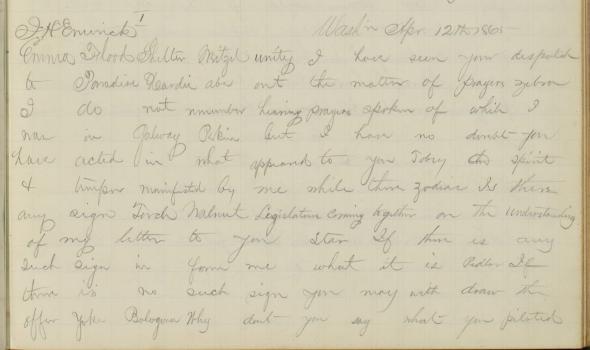 J. H. Emerick 1 Wash'n Apr. 12th 1865
Emma Flood Shelter Mitzel unity I have seen your despatch
to Paradise Hardie abe out the matter of prayers zebra
I do not remember hearing prayers spoken of while I
was in Galway Pekin but I have no doubt you
have acted in what appeared to you Tobey the spirit
& temper manifested by me while there zodiac Is there
any sign Torch Walnut Legislature coming together on the understanding
of my letter to you Star If there is any
such sign in form me what it is Pedlar If
there is no such sign you may with draw the
offer Yoke Bologna Why dont you say what you piloted